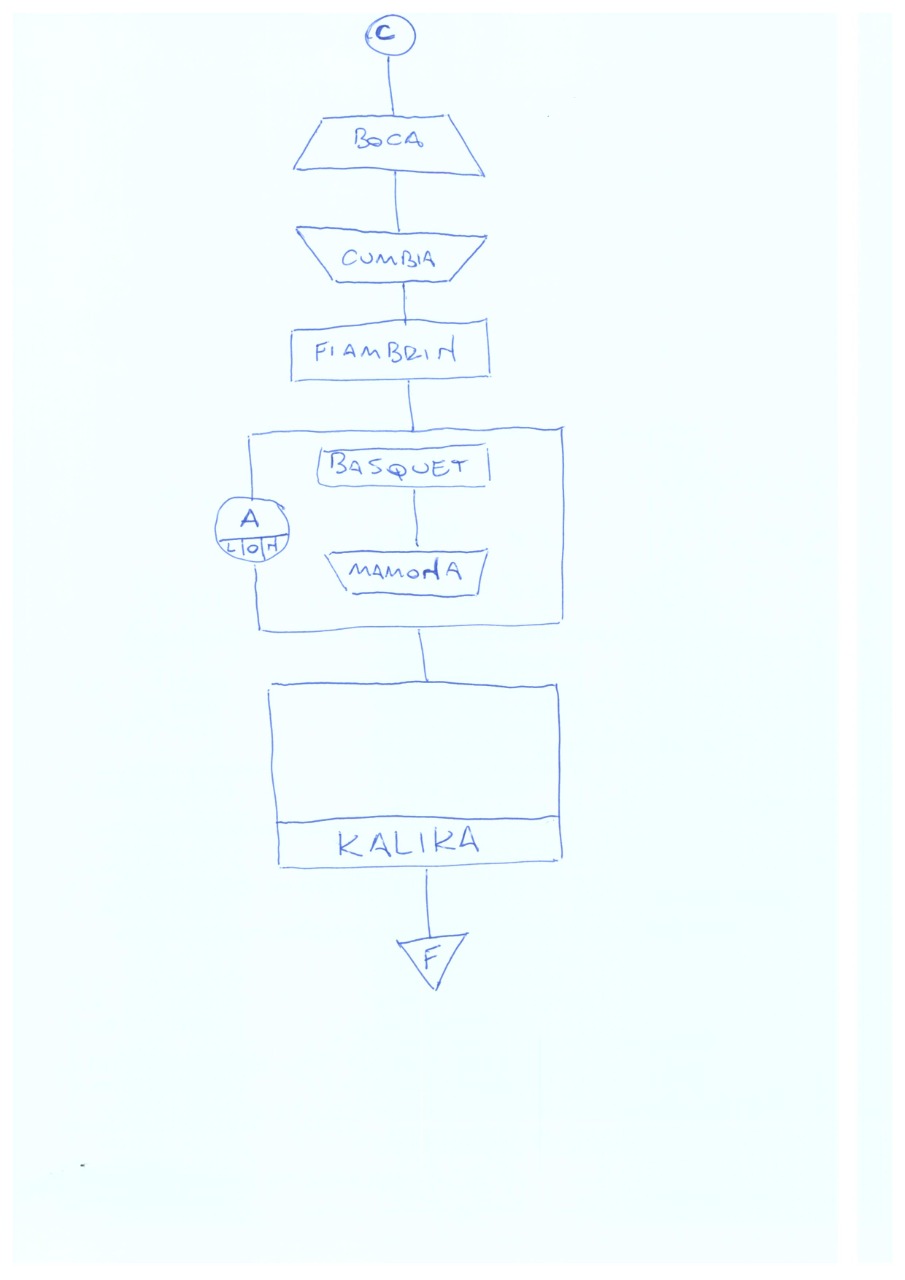 C
BOCA
CUMBIA
FIAMBRIN
BASQUET
A
L O N
MAMONA
KALIKA
F